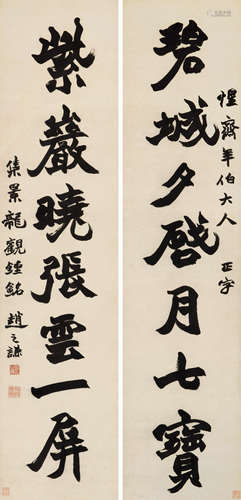 惺齋年伯大人 正字
碧城夕啟月七寶
紫巖曉張雲一屏
集景龍觀鐘銘 趙之謙